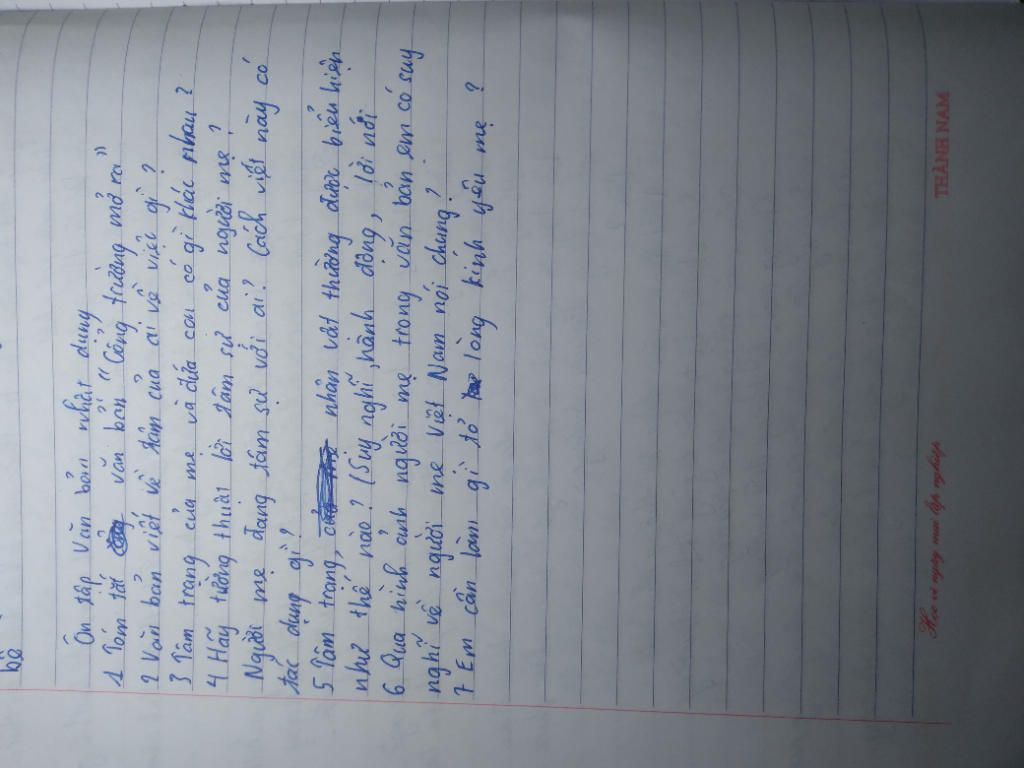 bộ
Ôn tập Văn bản nhật dụng
1 Tóm tắt văn bản "Cổng trường mở ra"
2 Văn bản viết về tâm của ai về việc gì ?
3 Tâm trạng của mẹ và đứa con có gì khác nhau ?
4 Hãy tường thuật lời tâm sự của người mẹ ?
Người mẹ đang tâm sự với ai ? Cách viết này có
tác dụng gì ?
5 Tâm trạng, nhân vật thường được biểu hiện
như thế nào ? (Suy nghĩ, hành động, lời nói
6 Qua hình ảnh người mẹ trong văn bản em có suy
nghĩ về người mẹ Việt Nam nói chung ?
7 Em cần làm gì tỏ lòng kính yêu mẹ ?
Học vì ngày mai lập nghiệp
THÀNH NAM